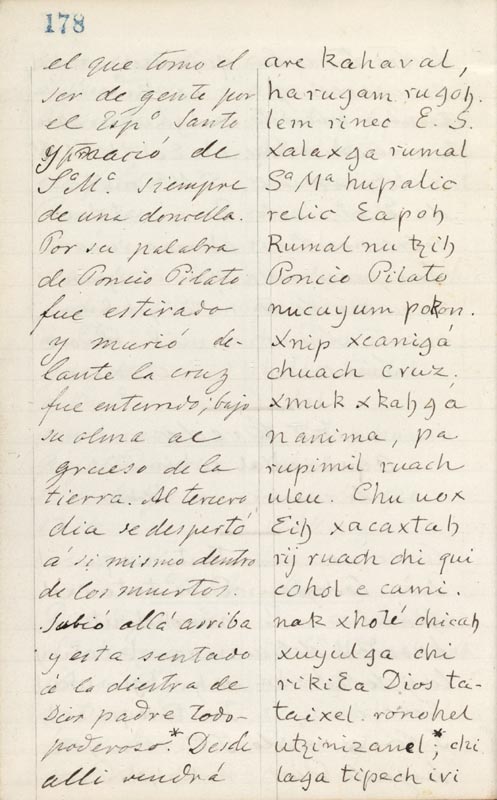 178
el que tomo el
ser de gente por
el Espº Santo
y nació de
Sª Mª siempre
de una doncella.
Por su palabra
de Poncio Pilato
fue estirado
y murió de-
lante la cruz
fue enterrado; bajo
su alma al
grueso de la
tierra. Al tercero
dia se despertó
á si mismo dentro
de los muertos.
Subió allá arriba
y esta sentado
á la diestra de
Dios padre todo-
poderoso.* Desde
alli vendrá
are kahaval,
harugam rugoh.
lem rinec E. S.
xalaxga rumal
Sª Mª hupalic
relic Eapoh
Rumal nu tzih
Poncio Pilato
nucuyum pokon.
Xnip xcanigá
chuach cruz.
xmuk xkahgá
nanima, pa
rupimil ruach
uleu. Chu uox
Eih xacaxtah
rij ruach chi qui
cohol e cami.
nak xholé chicah
xuyulga chi
rikiEa Dios ta-
taixel. ronohel
utzinizanel*; chi
laga tipech ivi